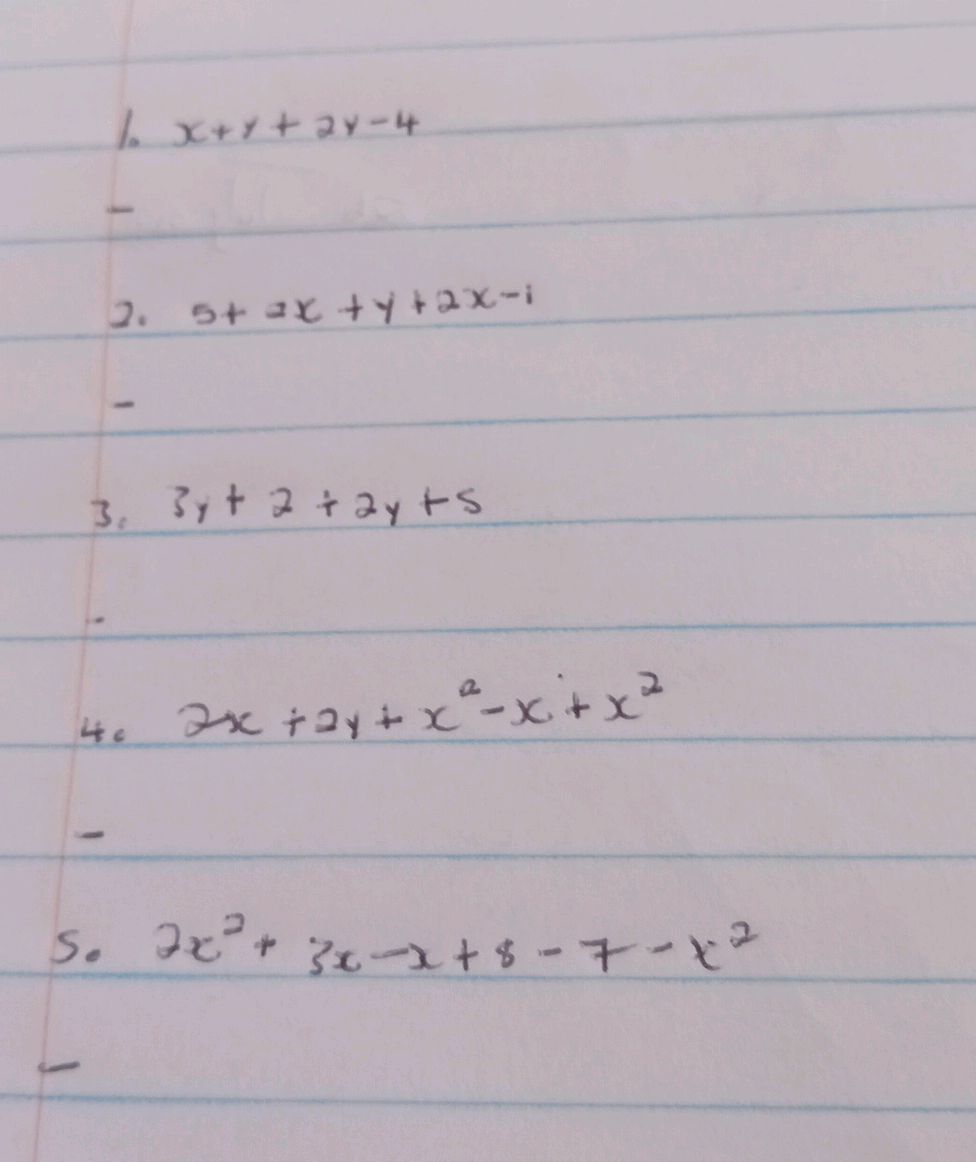 1. x+y+2y-4
-
2. 5+2x+y+2x-1
-
3. 3y+2+2y+5
-
4. 2x+2y+x²-x+x²
-
5. 2x²+3x-x+8-7-x²
-